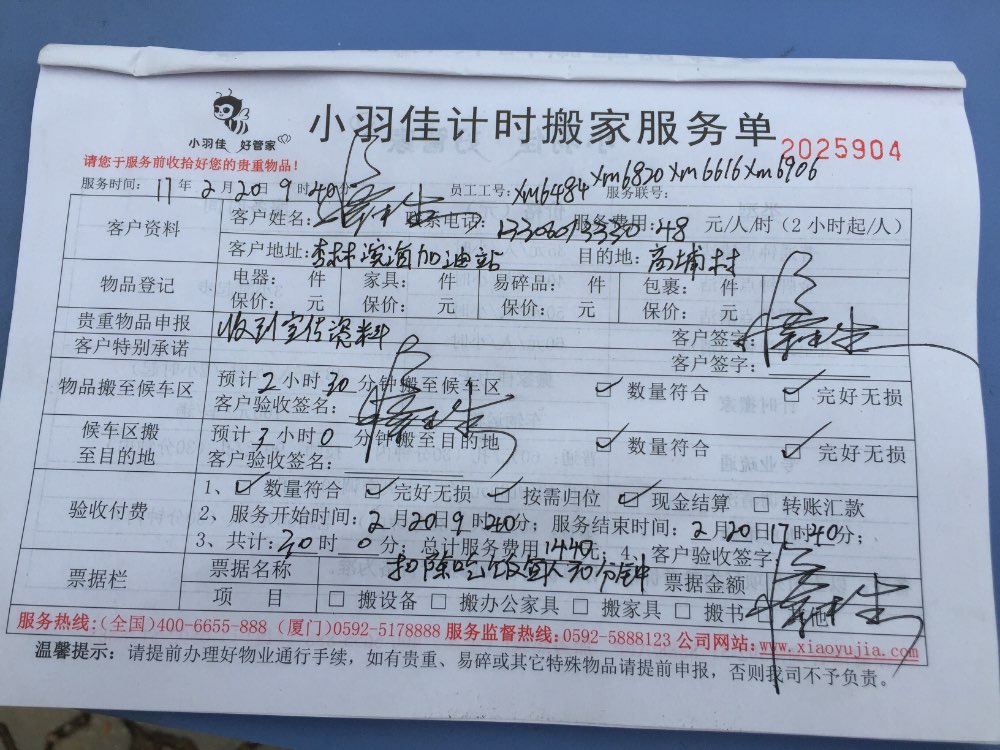 小羽佳 好管家
小羽佳计时搬家服务单
2025904
请您于服务前收拾好您的贵重物品！
服务时间：17年2月20日9时40分 员工工号：xm6484 xm6820 xm6616 xm6906 服务联号：
客户资料
客户姓名： 联系电话： 服务费用：48 元/人/时（2小时起/人）
客户地址：杏林滨海加油站 目的地：高埔村
物品登记
电器： 件 家具： 件 易碎品： 件 包裹： 件
保价： 元 保价： 元 保价： 元 保价： 元
贵重物品申报 收到宣传资料 客户签字：
客户特别承诺 客户签字：
物品搬至候车区
预计2小时30分钟搬至候车区 数量符合 完好无损
客户验收签名：
候车区搬至目的地
预计3小时0分钟搬至目的地 数量符合 完好无损
客户验收签名：
验收付费
1、数量符合 完好无损 按需归位 现金结算 转账汇款
2、服务开始时间：2月20日9时40分；服务结束时间：2月20日17时40分；
3、共计：30时0分；总计服务费用1440元；4、客户验收签字
票据栏
票据名称 扣除吃饭每人30分钟 票据金额
项 目 搬设备 搬办公家具 搬家具 搬书 其他
服务热线：(全国)400-6655-888 (厦门)0592-5178888 服务监督热线：0592-5888123 公司网站：www.xiaoyujia.com
温馨提示：请提前办理好物业通行手续，如有贵重、易碎或其它特殊物品请提前申报，否则我司不予负责。